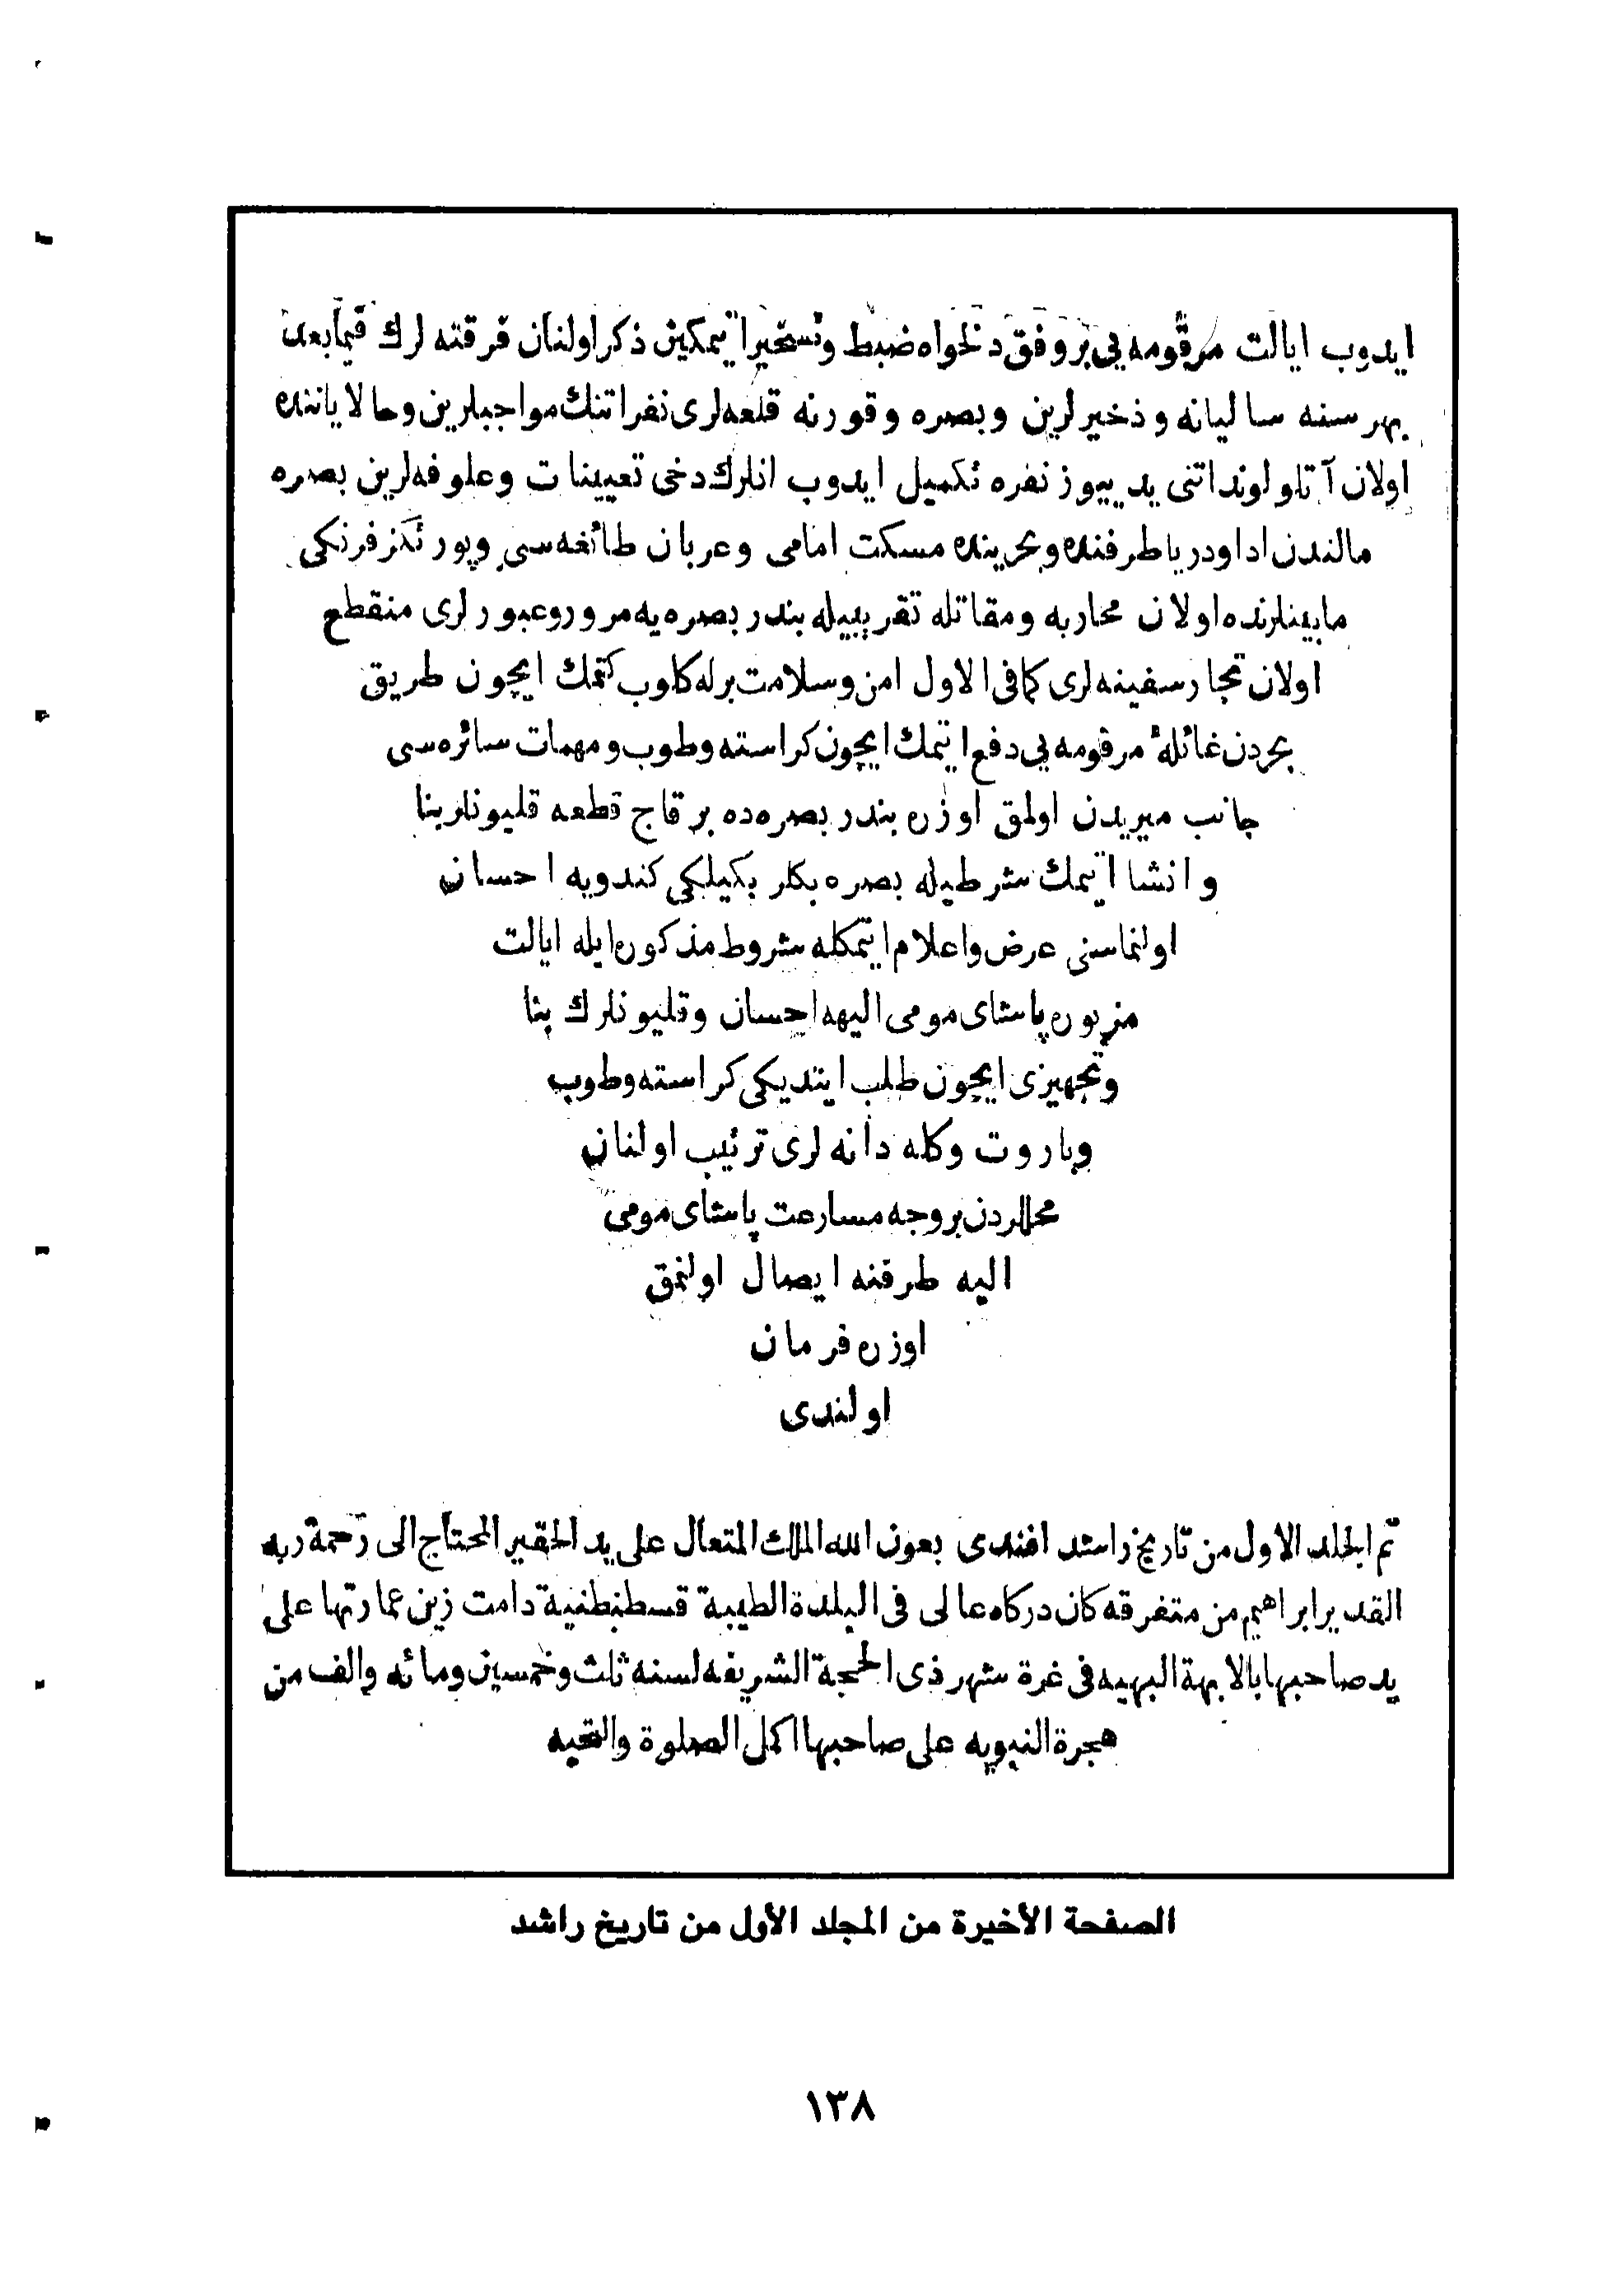 ايدوب ايالت مرقومه يى بر وفق دلخواه ضبط وتسخير ايتمكين ذكر اولنان فرقته لرك فيمابعد
بهر سنه ساليانه وذخيرلرين وبصره وقورنه قلعه لرى نفراتنك مواجبلرين وحالا ياننده
اولان آتلو لونداتنى يديیوز نفره تكميل ايدوب انلرك دخى تعيينات وعلوفه لرين بصره
مالندن ادا ودريا طرفنده وبحرينده مسكت امامى وعربان طائفه سى وپورتكز فرنكى
مابينلرنده اولان محاربه ومقاتله تقريبيله بندر بصره يه مرور وعبورلرى منقطع
اولان تجار سفينه لرى كما فى الاول امن وسلامت برله كلوب كتمك ايچون طريق
بحردن غائلهٔ مرقومه يى دفع ايتمك ايچون كراسته وطوب ومهمات سائره سى
جانب ميريدن اولمق اوزره بندر بصره ده بر قاچ قطعه قليونلر بنا
وانشا ايتمك شرطيله بصره بكلر بكيلكى كندويه احسان
اولنماسنى عرض واعلام ايتمكله شروط مذكوره ايله ايالت
مزبوره پاشاى مومى اليهه احسان وقليونلرك بنا
وتجهيزى ايچون طلب ايتديكى كراسته وطوب
وباروت وكله دانه لرى ترتيب اولنان
محللردن بر وجه مسارعت پاشاى مومى
اليه طرفنه ايصال اولنمق
اوزره فرمان
اولندى
تم الجلد الاول من تاريخ راشد افندى بعون الله الملك المتعال على يد الحقير المحتاج الى رحمة ربه
القدير ابراهيم من متفرقه كان دركاه عالى فى البلدة الطيبة قسطنطنية دامت زين عمارتها على
يد صاحبها بالابهة البهيه فى غرة شهر ذى الحجة الشريفه لسنه ثلث وخمسين ومائه والف من
هجرة النبويه على صاحبها اكمل الصلوة والتحيه
الصفحة الأخيرة من المجلد الأول من تاريخ راشد
١٣٨